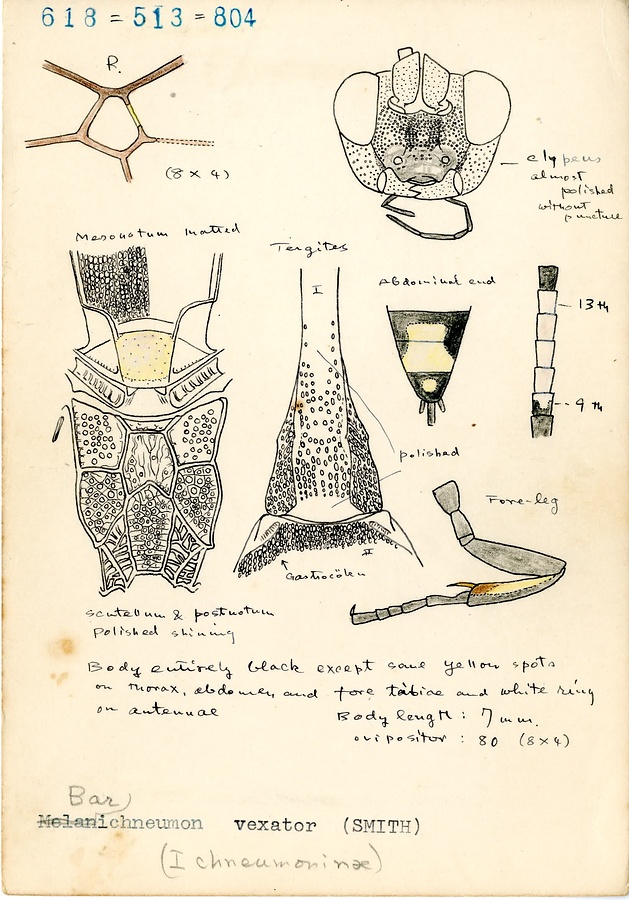 618 = 513 = 804
R.
(8 x 4)
clypeus
almost
polished
without
puncture
Mesonotum matted
Tergites
I
Abdominal end
13 th
9 th
polished
Fore-leg
II
Gastrocölen
scutellum & postnotum
Polished shining
Body entirely black except some yellow spots
on thorax, abdomen, and fore tibiae and white ring
on antennae
Body length : 7 mm.
ovipositor : 80 (8x4)
Bar)
Melanichneumon vexator (SMITH)
(Ichneumoninae)